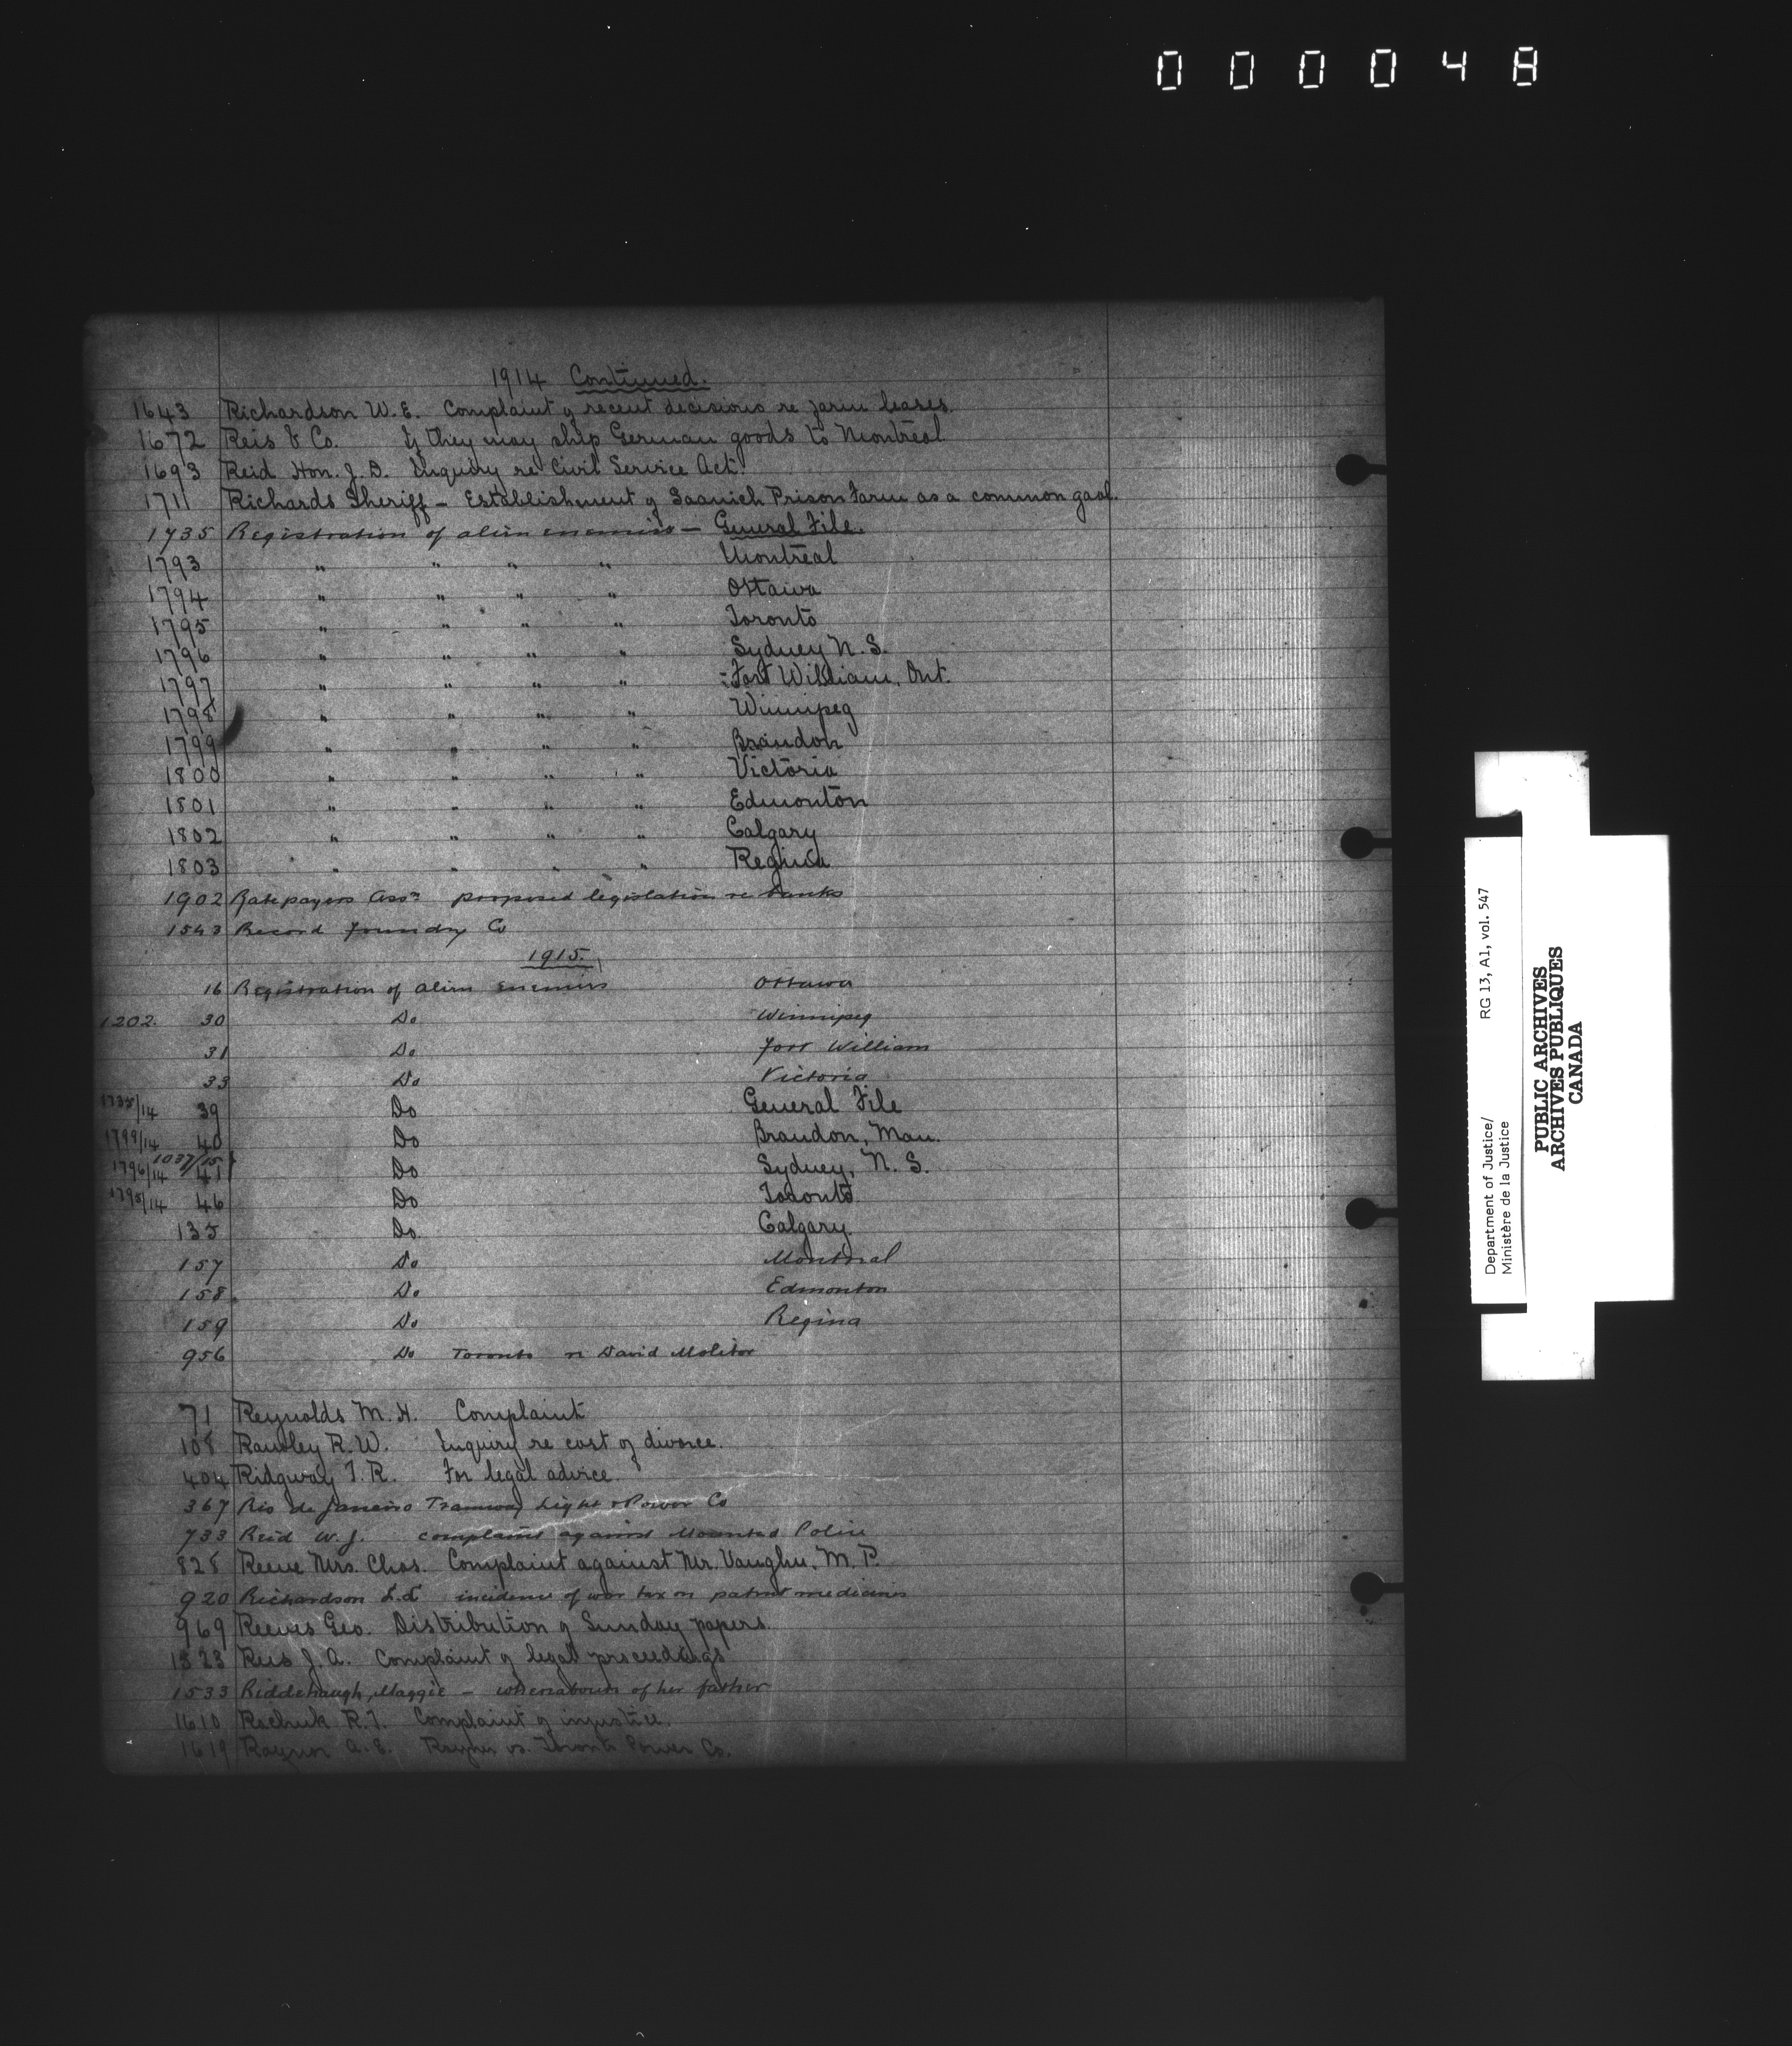 000048
1914 Continued.
1643 Richardson W. E. Complaint of recent decisions re farm leases.
1672 Reis & Co. If they may ship German goods to Montreal
1693 Reid Hon. J. D. Inquiry re Civil Service Act.
1711 Richards Sheriff - Establishment of Saanich Prison Farm as a common gaol.
1735 Registration of alien enemies - General File.
1793 " " " " Montreal
1794 " " " " Ottawa
1795 " " " " Toronto
1796 " " " " Sydney N. S.
1797 " " " " Fort William, Ont.
1798 " " " " Winnipeg
1799 " " " " Brandon
1800 " " " " Victoria
1801 " " " " Edmonton
1802 " " " " Calgary
1803 " " " " Regina
1902 Ratepayers Assn proposed legislation re banks
1543 Record Foundry Co
1915.
16 Registration of alien enemies Ottawa
1202. 30 Do Winnipeg
31 Do Fort William
33 Do Victoria
1735/14 39 Do General File
1799/14 40 Do Brandon, Man.
1037/15
1796/14 41 Do Sydney, N. S.
1795/14 46 Do Toronto
135 Do. Calgary.
157 Do Montreal
158 Do Edmonton
159 Do Regina
956 Do Toronto re David Molitor
71 Reynolds M. H. Complaint
108 Rawley R. W. Inquiry re cost of divorce.
404 Ridgway T. R. For legal advice.
367 Rio de Janeiro Tramway Light & Power Co
733 Reid W. J. complaint against Mounted Police
828 Reeve Mrs. Chas. Complaint against Mr. Vaughn, M. P.
920 Richardson incidence of war tax on patent medicines
969 Reeves Geo. Distribution of Sunday papers.
1523 Reis J. A. Complaint of legal proceedings
1533 Riddehaugh, Maggie - whereabouts of her father
1610 Rachuk R. T. Complaint of injustice.
1619 Raynor A. E. Raynor vs. Toronto Power Co.
Department of Justice/ RG 13, A1, vol. 547
Ministère de la Justice
PUBLIC ARCHIVES
ARCHIVES PUBLIQUES
CANADA